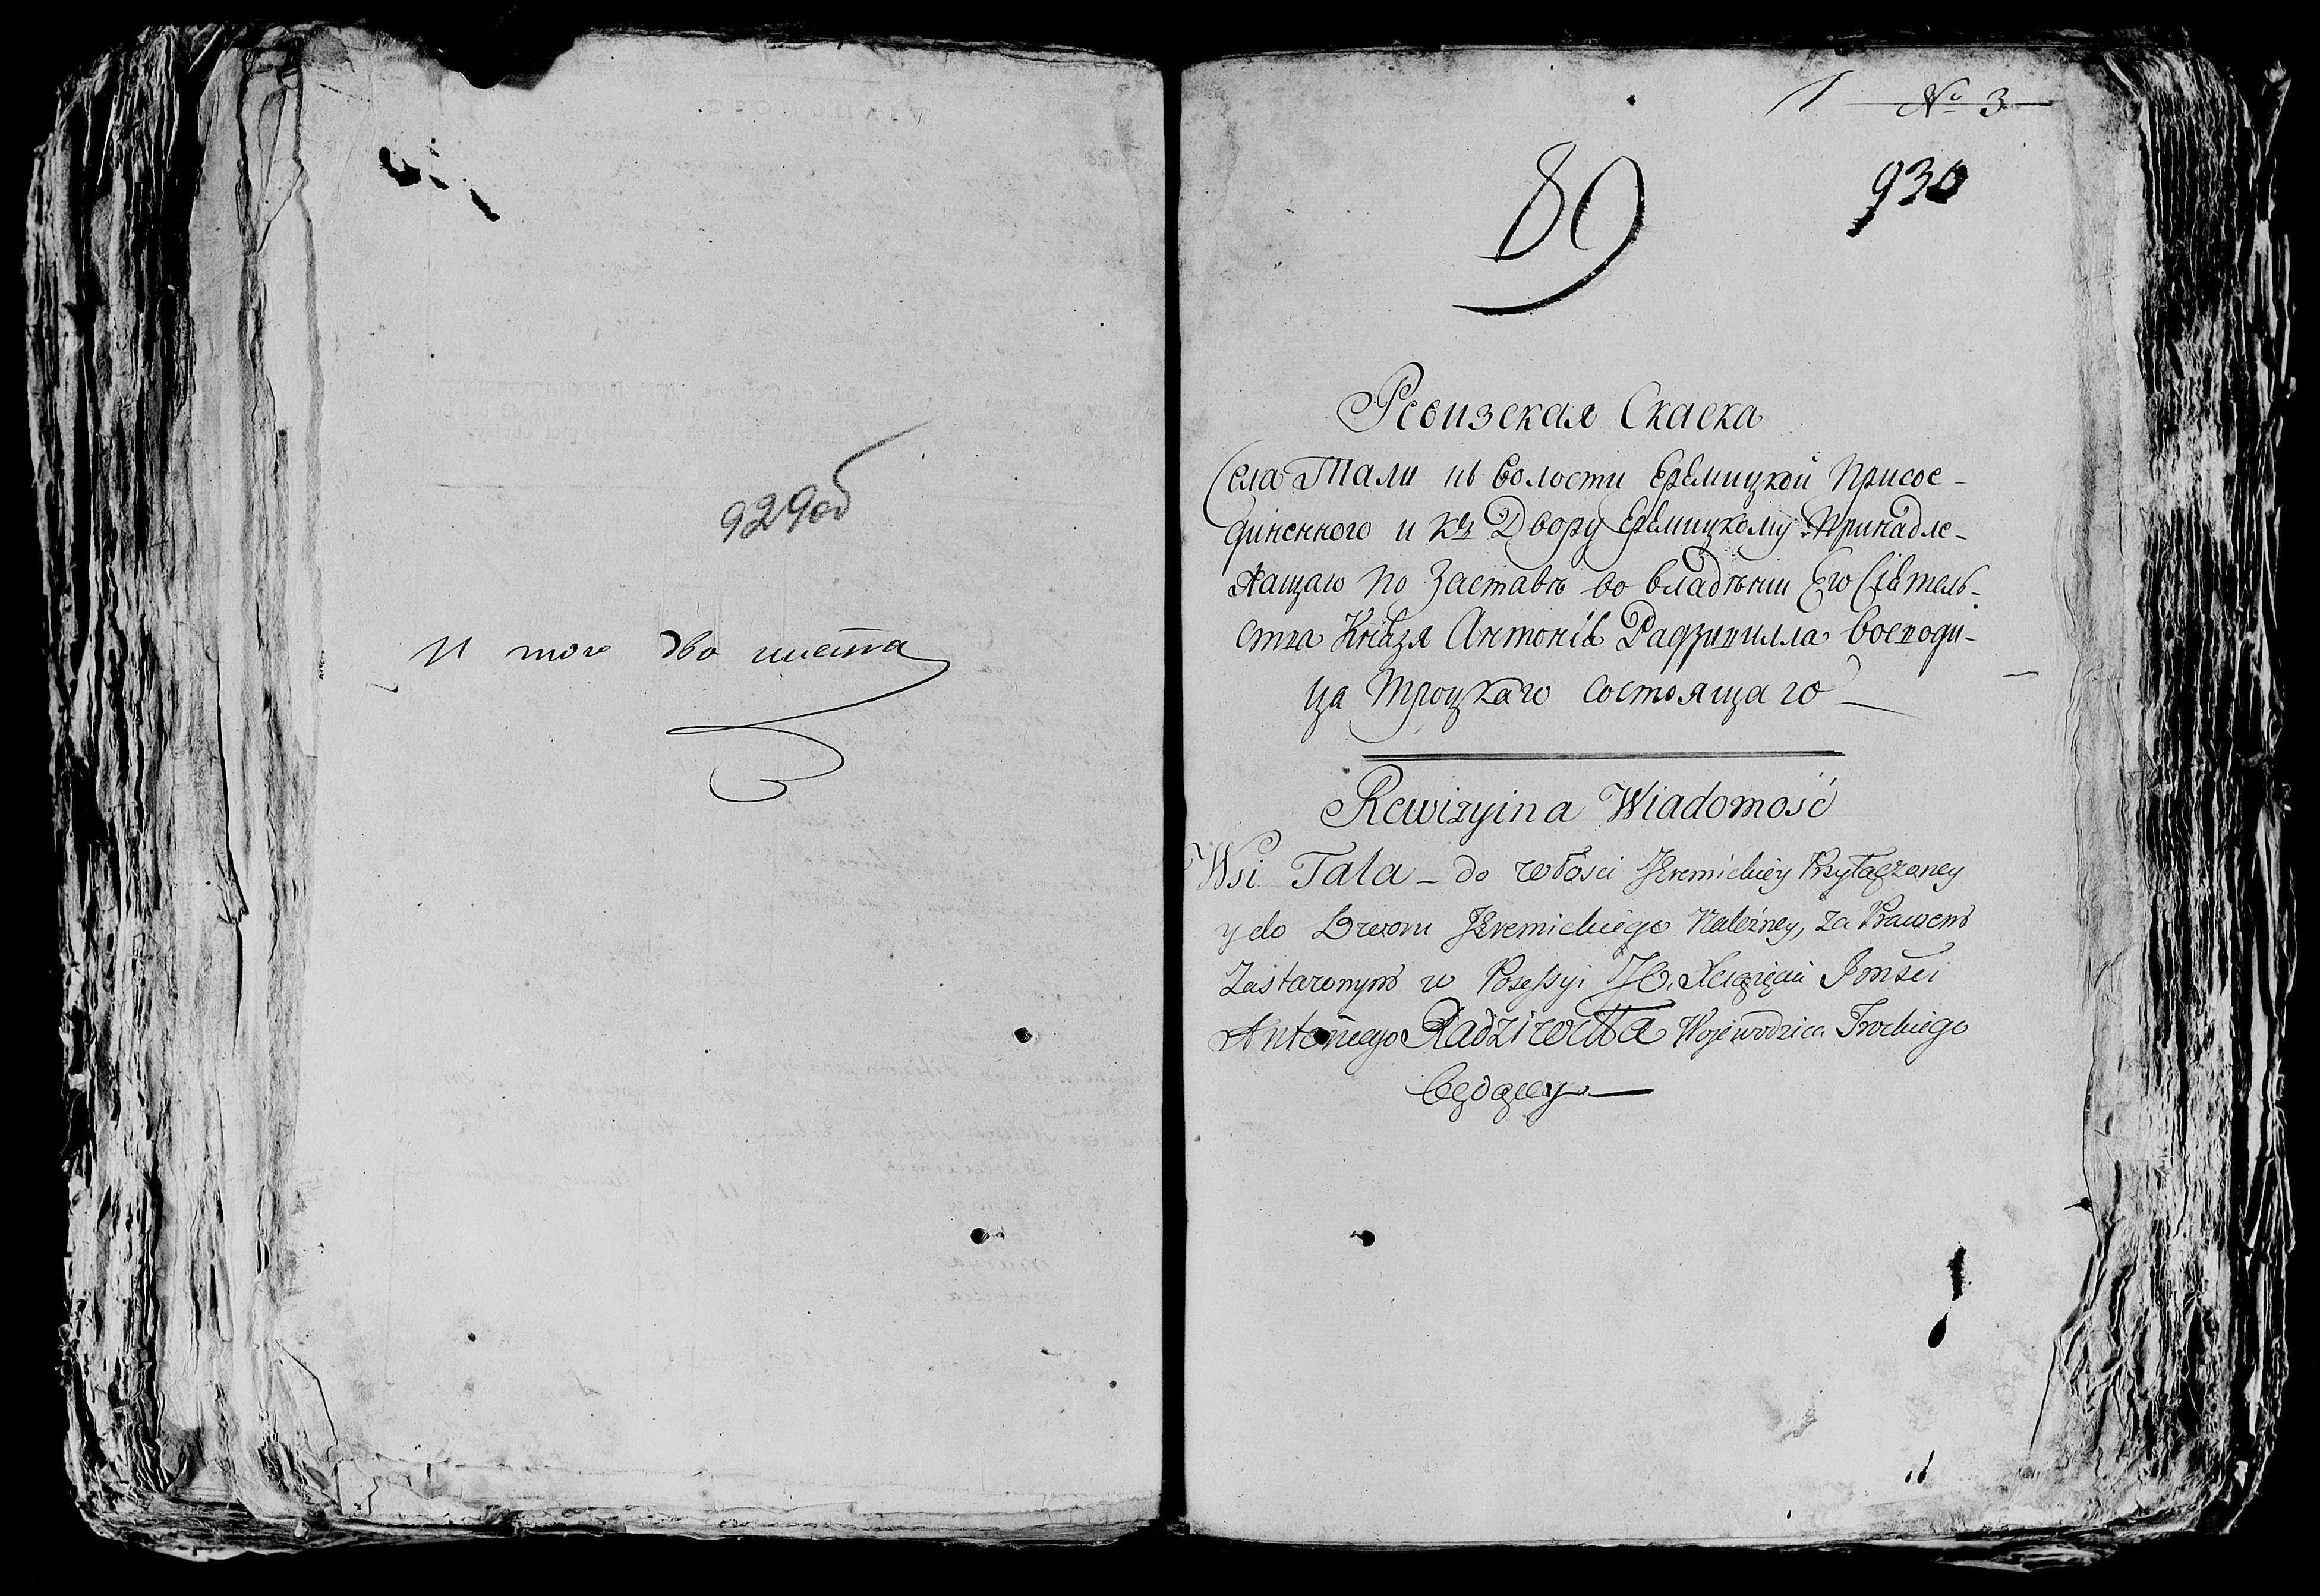 929об
И того два листа
1 № 3
930
89
Ревизская Скаска
Села Тали къ волости Еремицкой Присое-
диненного и къ Двору Еремицкому Принадле-
жащаго по Заставѣ во владѣнiи Его Сiятель-
ства Князя Антонiя Радзивилла воеводи-
ча Троцкаго состоящаго
Rewizyina Wiadomość
Wsi Tala – do włości Jeremickiey Przyłączoney
y do Dworu Jeremickiego Należney, za Prawem
Zastawnym w Possesyi JO. Xiążęcia Jmści
Antoniego Radziwiłła Wojewodzica Trockiego
będącey